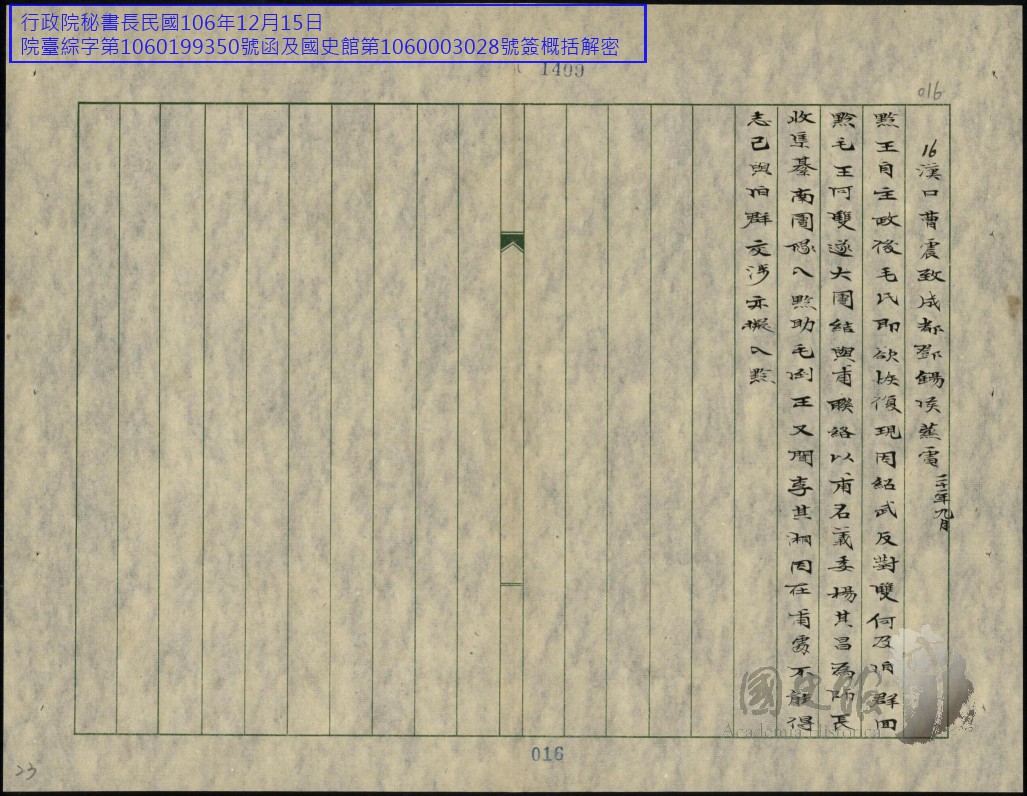 行政院秘書長民國106年12月15日
院臺綜字第1060199350號函及國史館第1060003028號簽概括解密
1409
016
16漢口曹震致成都鄧錫侯蒸電 二十一年九月
黔王自主政後毛氏即欲恢復現因紹武反對雙何及伯群回
黔毛王何雙遂大團結與甫聯絡以甫名義委楊其昌為師長
收集綦南團隊入黔助毛倒王又聞李其湘因在甫處不能得
志已與伯群交涉亦擬入黔
國史館
Academia Historica
016
23